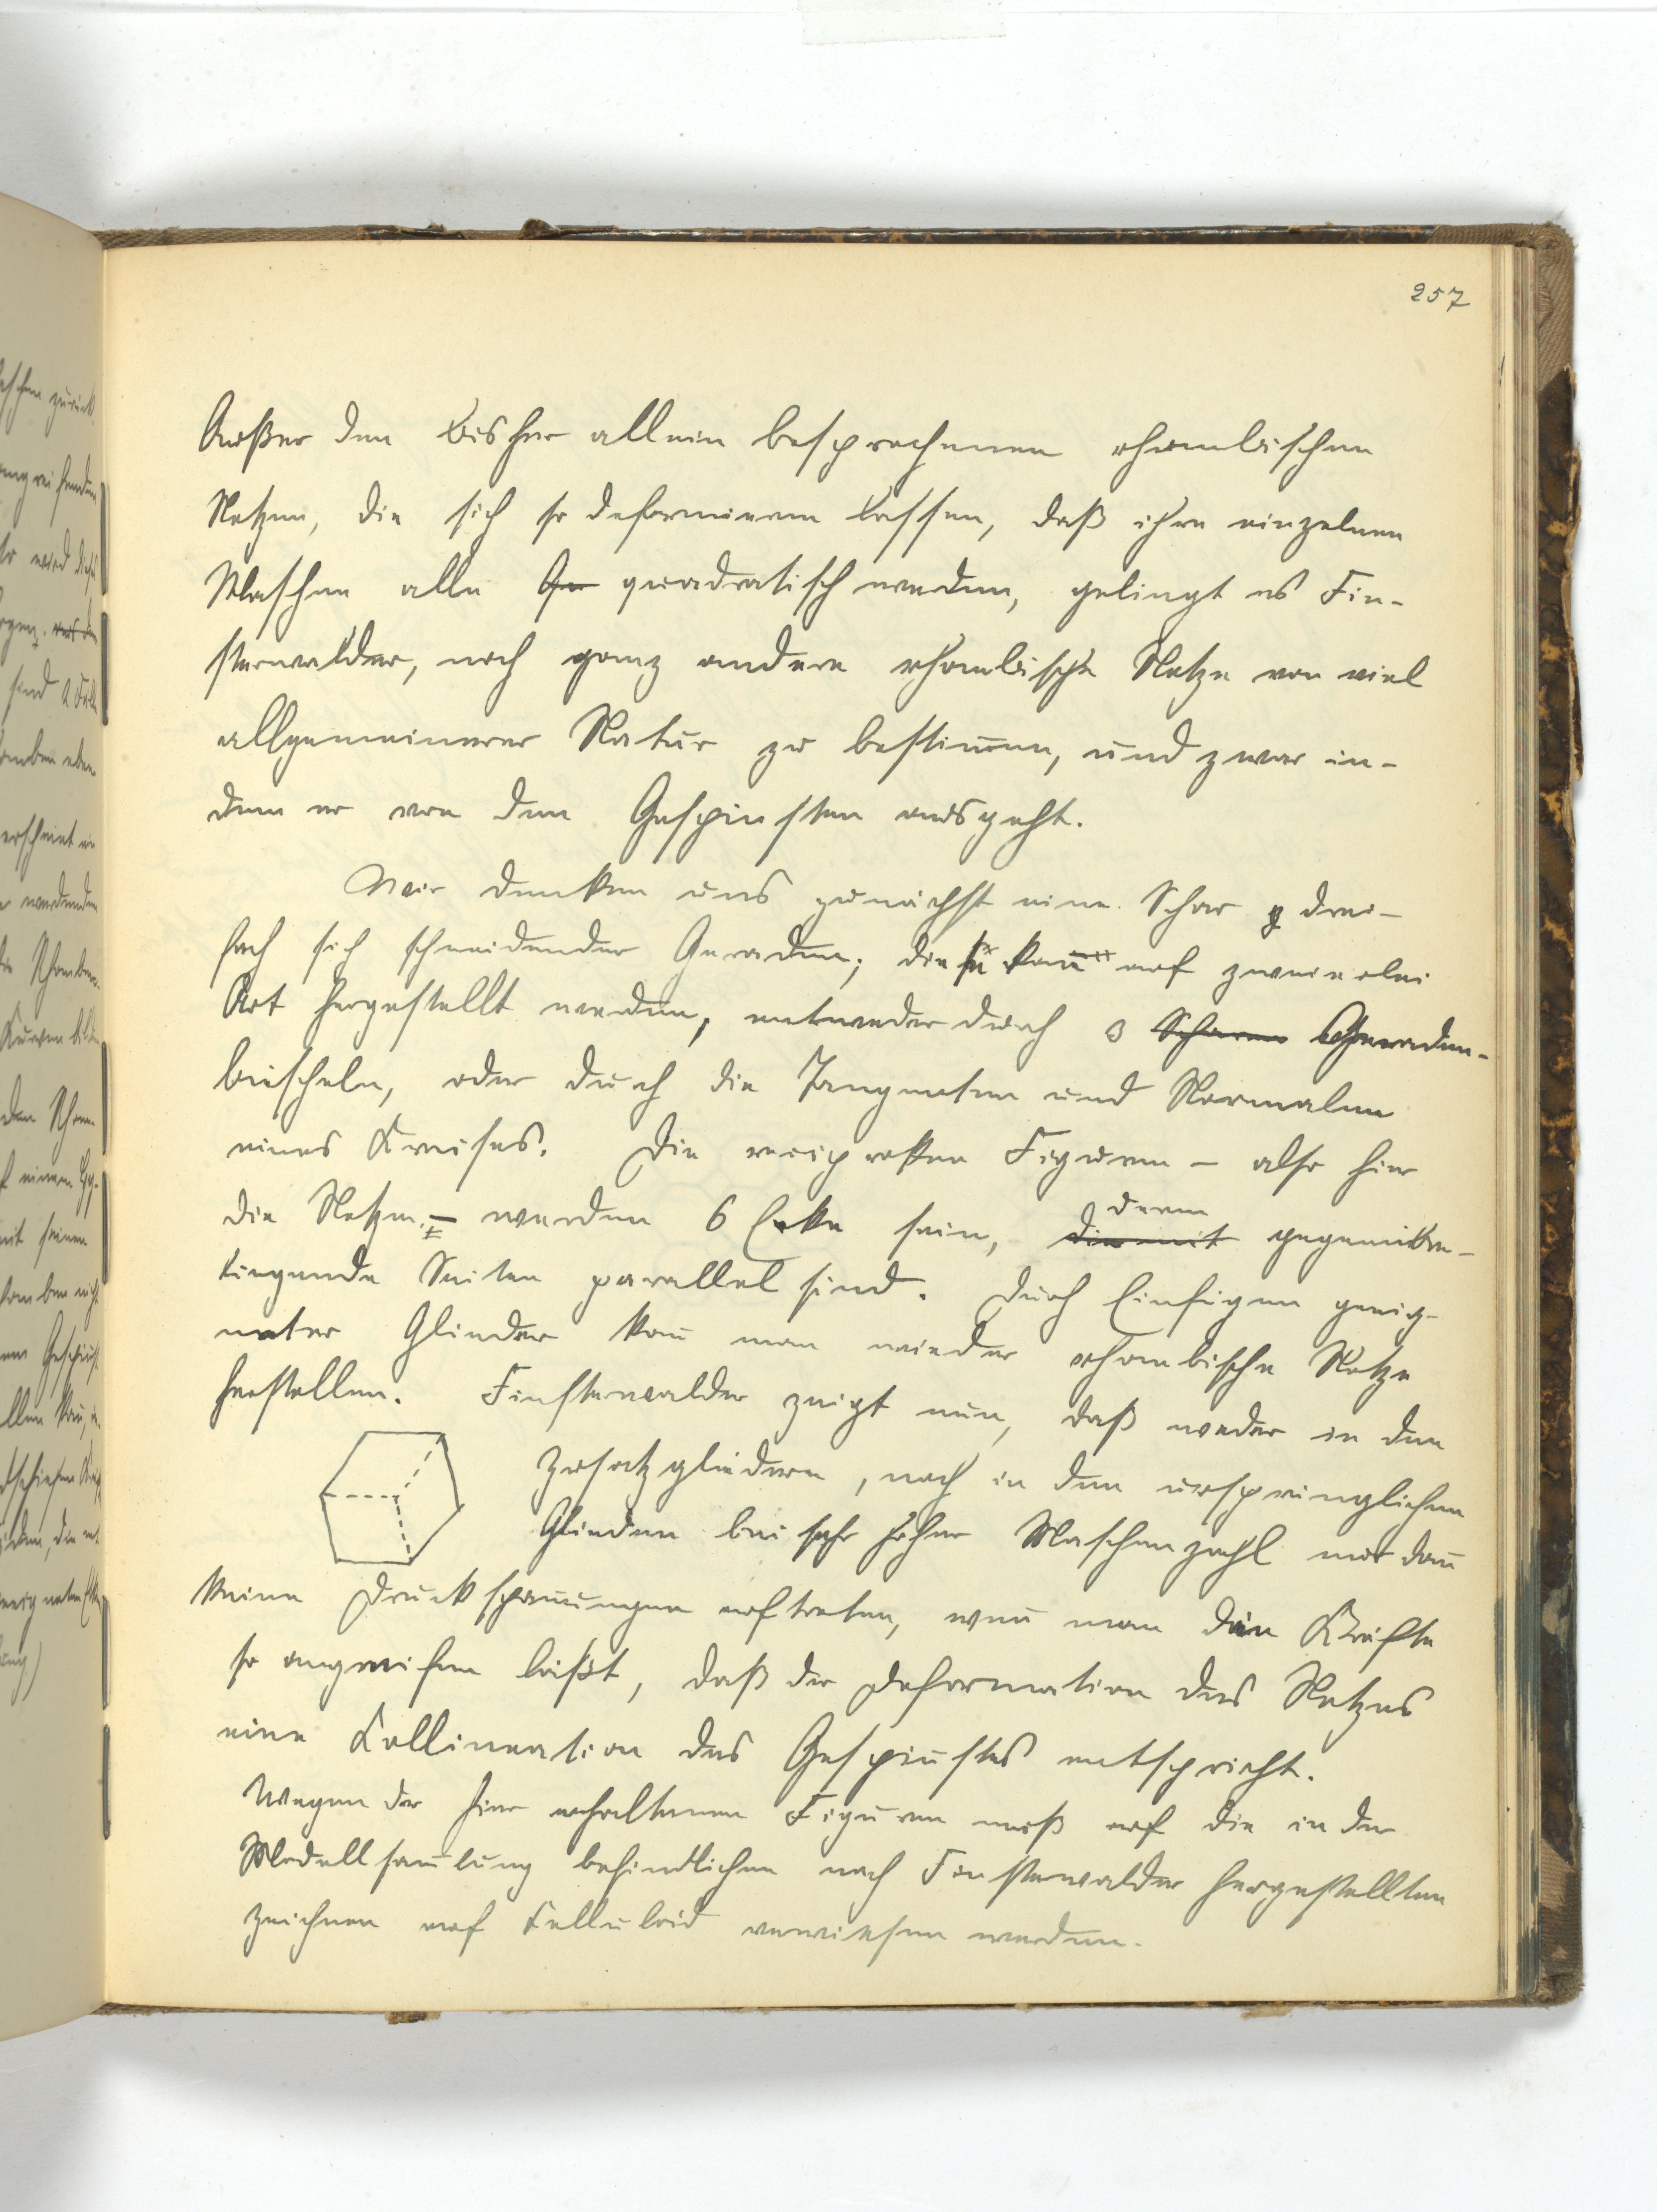 257
Außer den bisher allein besprochenen rhombischen
Netzen, die sich so deformieren lassen, daß ihre einzelnen
Maschen alle quadratisch werden, gelingt es Fin-
sterwalder, noch ganz andere rhombische Netze von viel
allgemeinerer Natur zu bestimmen, und zwar in-
dem er von den Gespinsten ausgeht.
Wir denken uns zunächst eine Schar drei-
fach sich schneidender Geraden; diese kann auf zweierlei
Art hergestellt werden, entweder durch 3 Scharen Geraden-
büscheln, oder durch die Tangenten und Normalen
eines Kreises. Die reciproken Figuren – also hier
die Netze – werden 6 Ecke sein, die mit deren gegenüber-
liegende Seiten parallel sind. Durch Einfügen geeig-
neter Glieder kann man wieder rhombische Netze
herstellen. Finsterwalder zeigt nun, daß weder in den
Zusatzgliedern, noch in den ursprünglichen
Gliedern bei sehr hoher Maschenzahl nur dann
keine Druckspannungen auftreten, wenn man die Kräfte
so angreifen läßt, daß der Deformation des Netzes
eine Kollineation des Gespinstes entspricht.
Wegen der hier erhaltenen Figuren muß auf die in der
Modellsammlung befindlichen nach Finsterwalder hergestellten
Zeichnen auf Celluloid verwiesen werden.